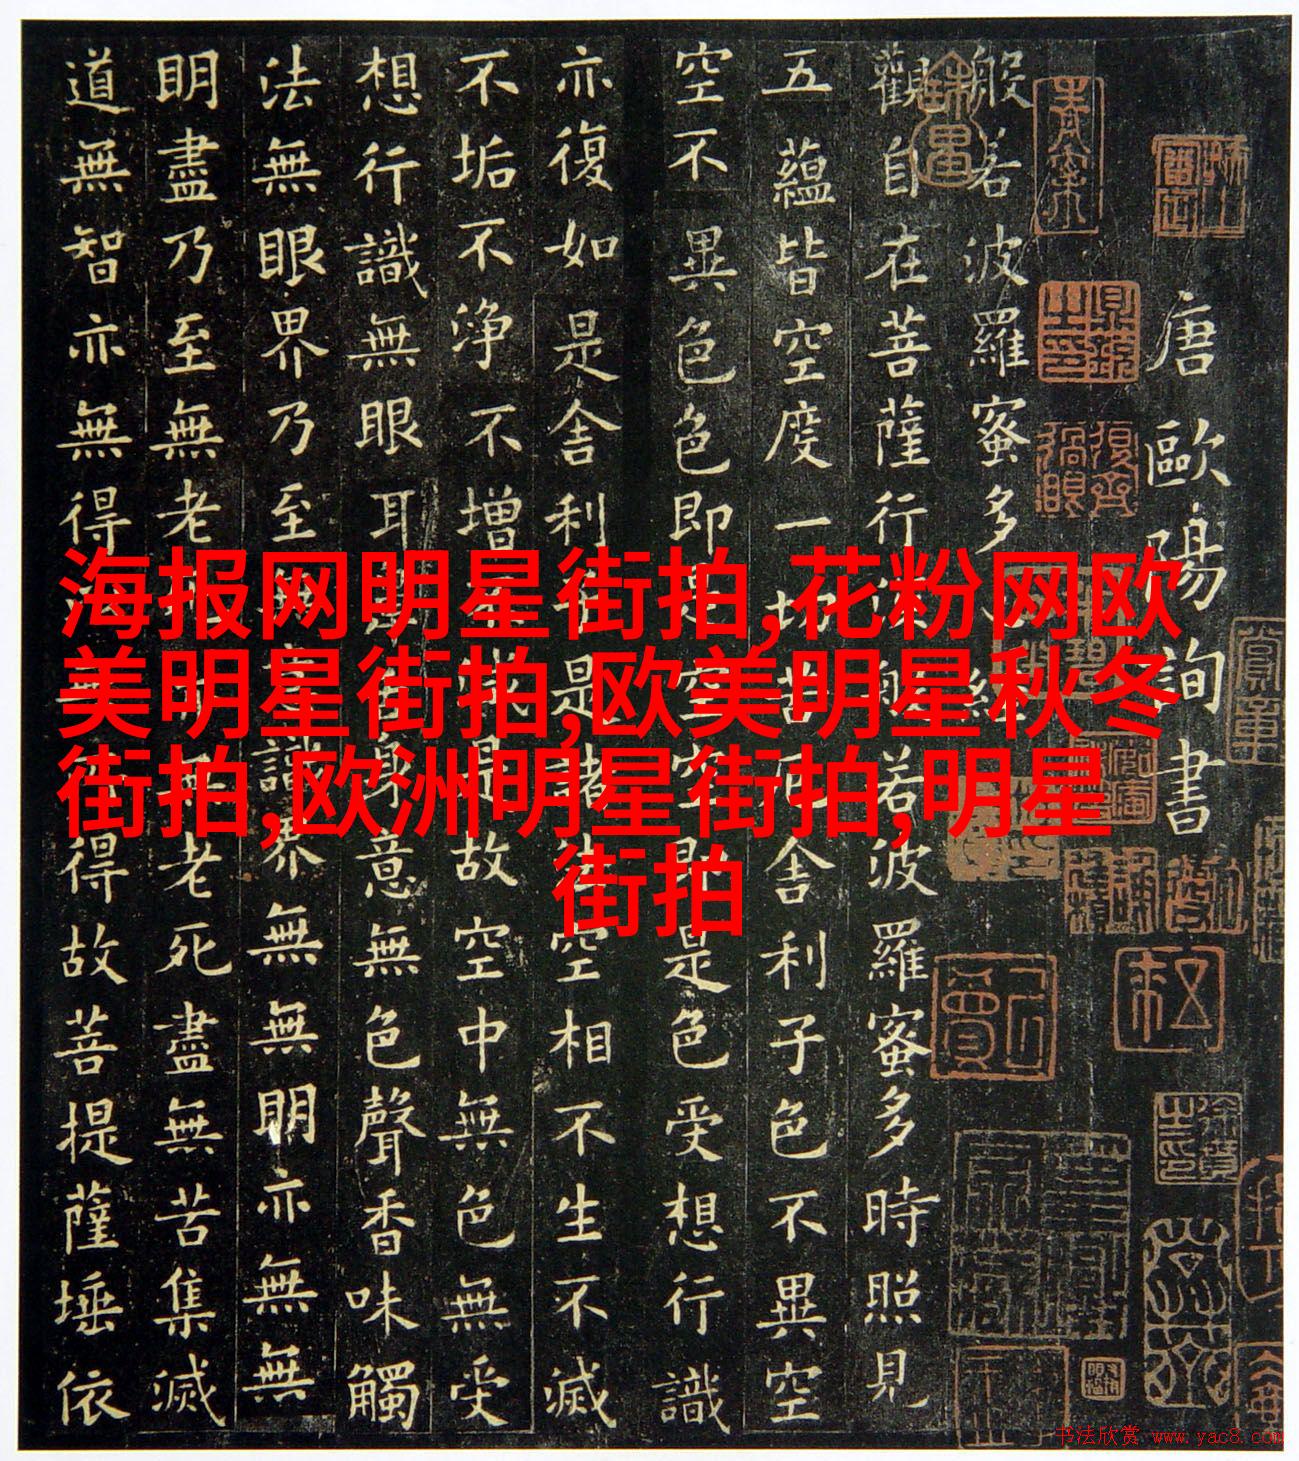 唐歐陽詢書
般若波羅蜜多心經
觀自在菩薩行深般若波羅蜜多時照見
五蘊皆空度一切苦厄舍利子色不異空
空不異色色即是空空即是色受想行識
亦復如是舍利子是諸法空相不生不滅
不垢不淨不增不減是故空中無色無受
想行識無眼耳鼻舌身意無色聲香味觸
法無眼界乃至無意識界無無明亦無無
明盡乃至無老死亦無老死盡無苦集滅
道無智亦無得以無所得故菩提薩埵依
海报网明星街拍,花粉网欧
美明星街拍,欧美明星秋冬
街拍,欧洲明星街拍,明星
街拍
书法欣赏 www.yac8.com